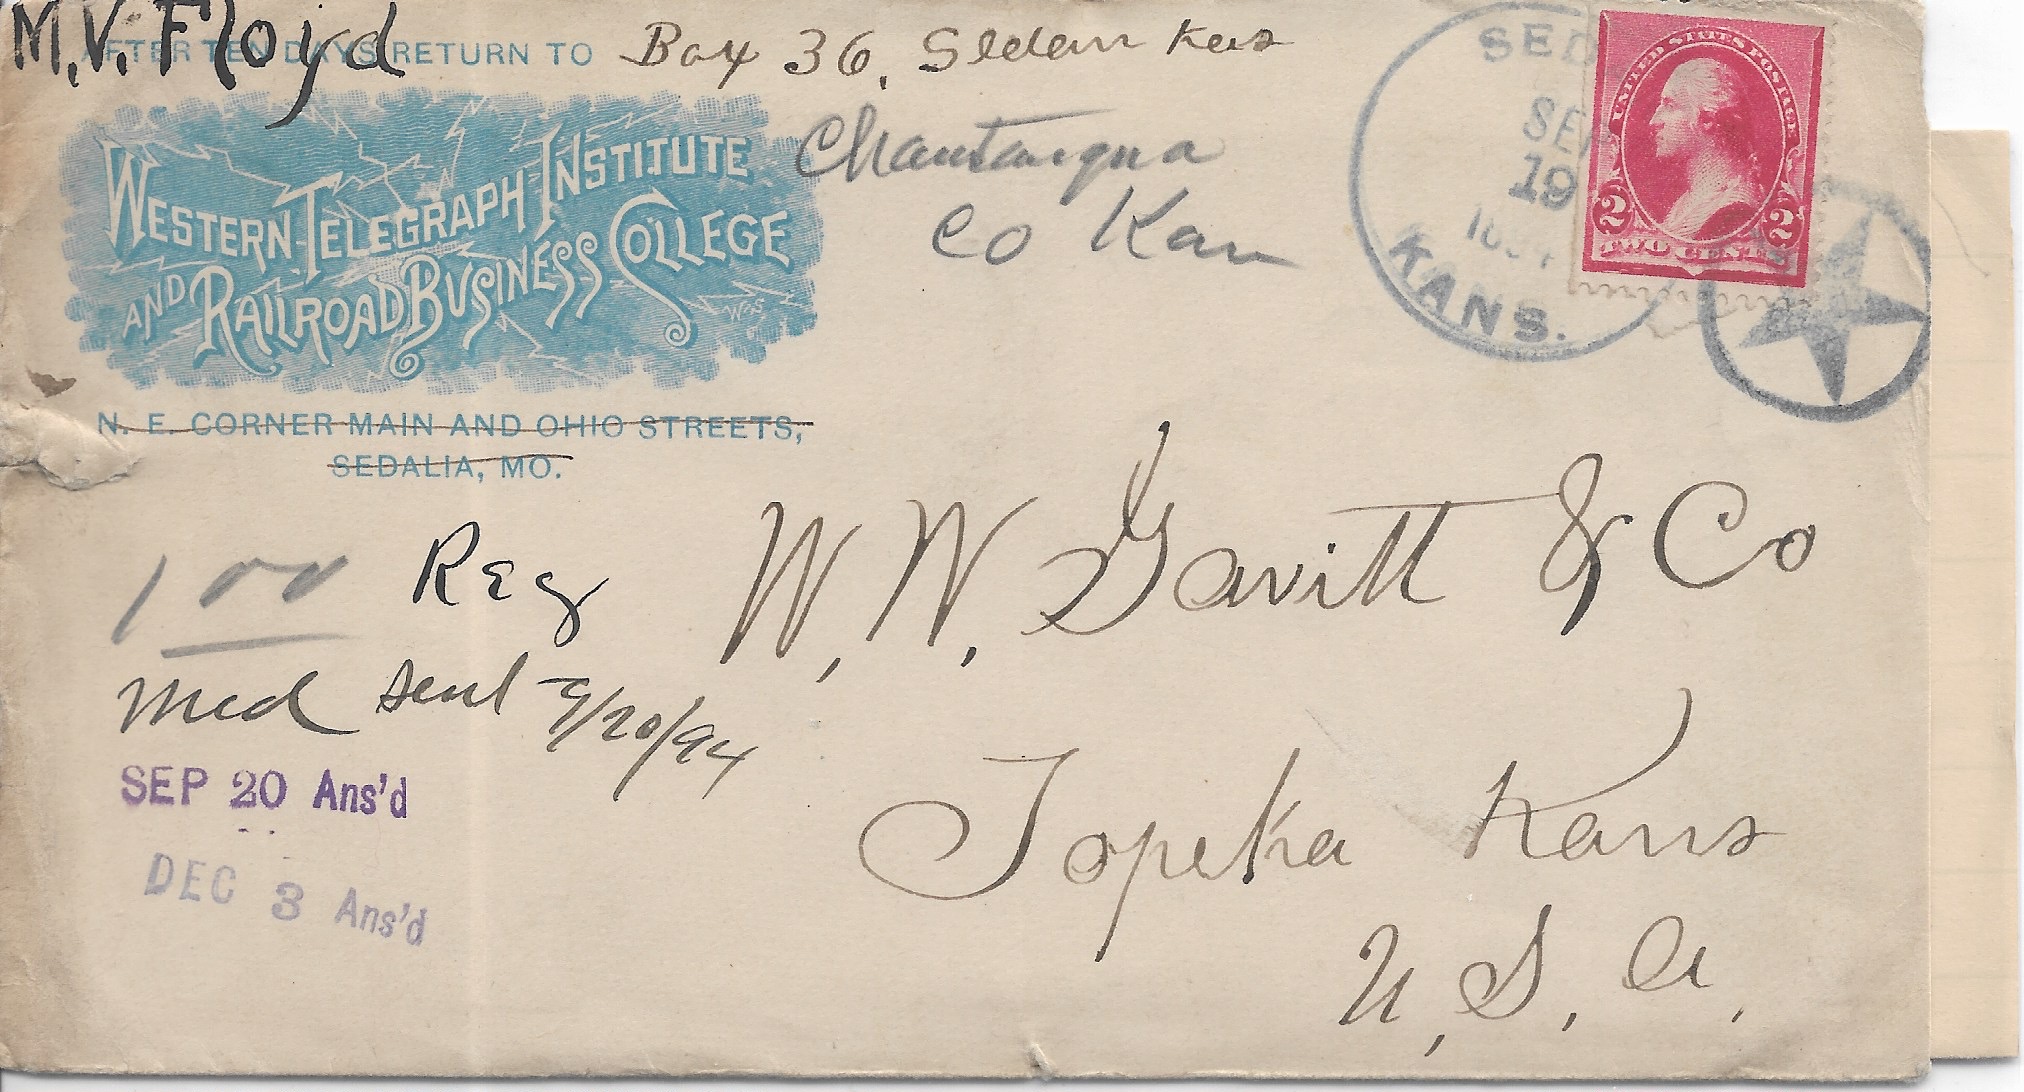 M.V. Floyd
AFTER TEN DAYS RETURN TO Box 36, Sedan Kas
Chautauqua
Co Kan
WESTERN TELEGRAPH INSTITUTE
AND RAILROAD BUSINESS COLLEGE
N. E. CORNER MAIN AND OHIO STREETS,
SEDALIA, MO.
SED
SEP
19
1894
KANS.
UNITED STATES POSTAGE
2 2
TWO CENTS
1 00 Reg
Med sent 9/20/94
SEP 20 Ans'd
DEC 3 Ans'd
W. W. Gavitt & Co
Topeka Kans
U. S. A.